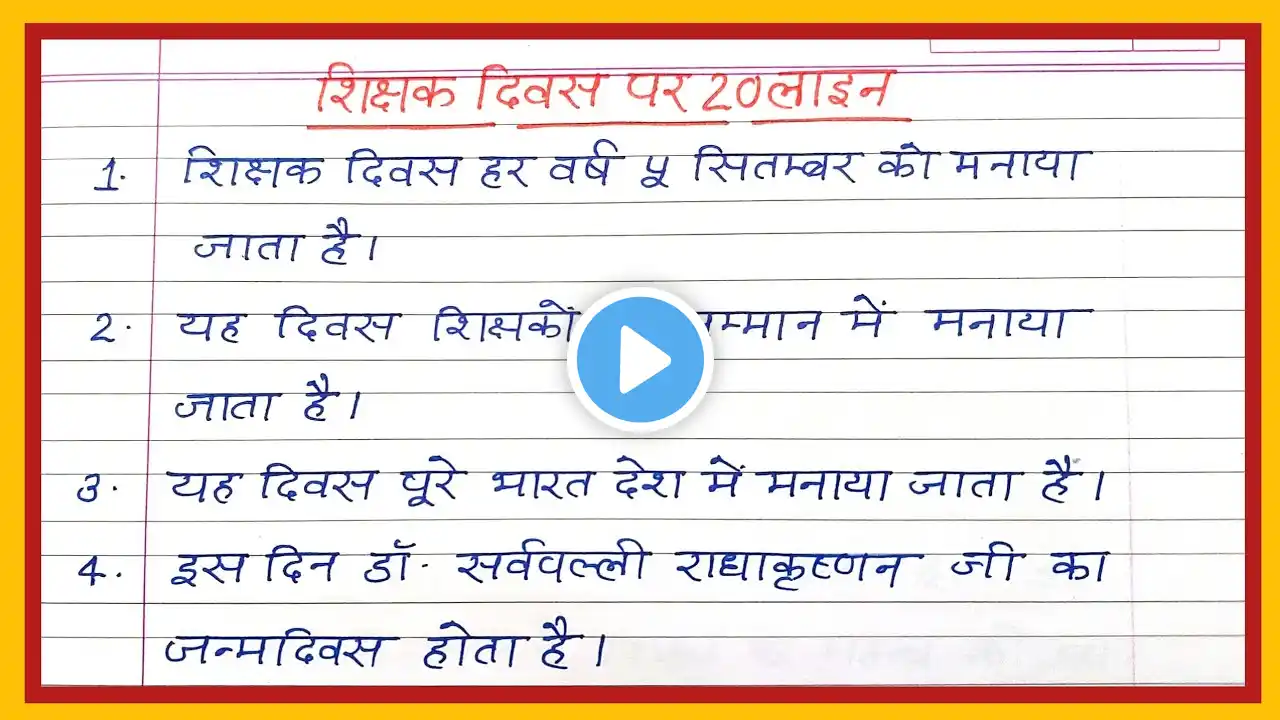 शिक्षक दिवस पर 20 लाइन
1. शिक्षक दिवस हर वर्ष ५ सितम्बर को मनाया
जाता है।
2. यह दिवस शिक्षकों म्मान में मनाया
जाता है।
3. यह दिवस पूरे भारत देश में मनाया जाता है।
4. इस दिन डॉ. सर्ववल्ली राधाकृष्णन जी का
जन्मदिवस होता है।